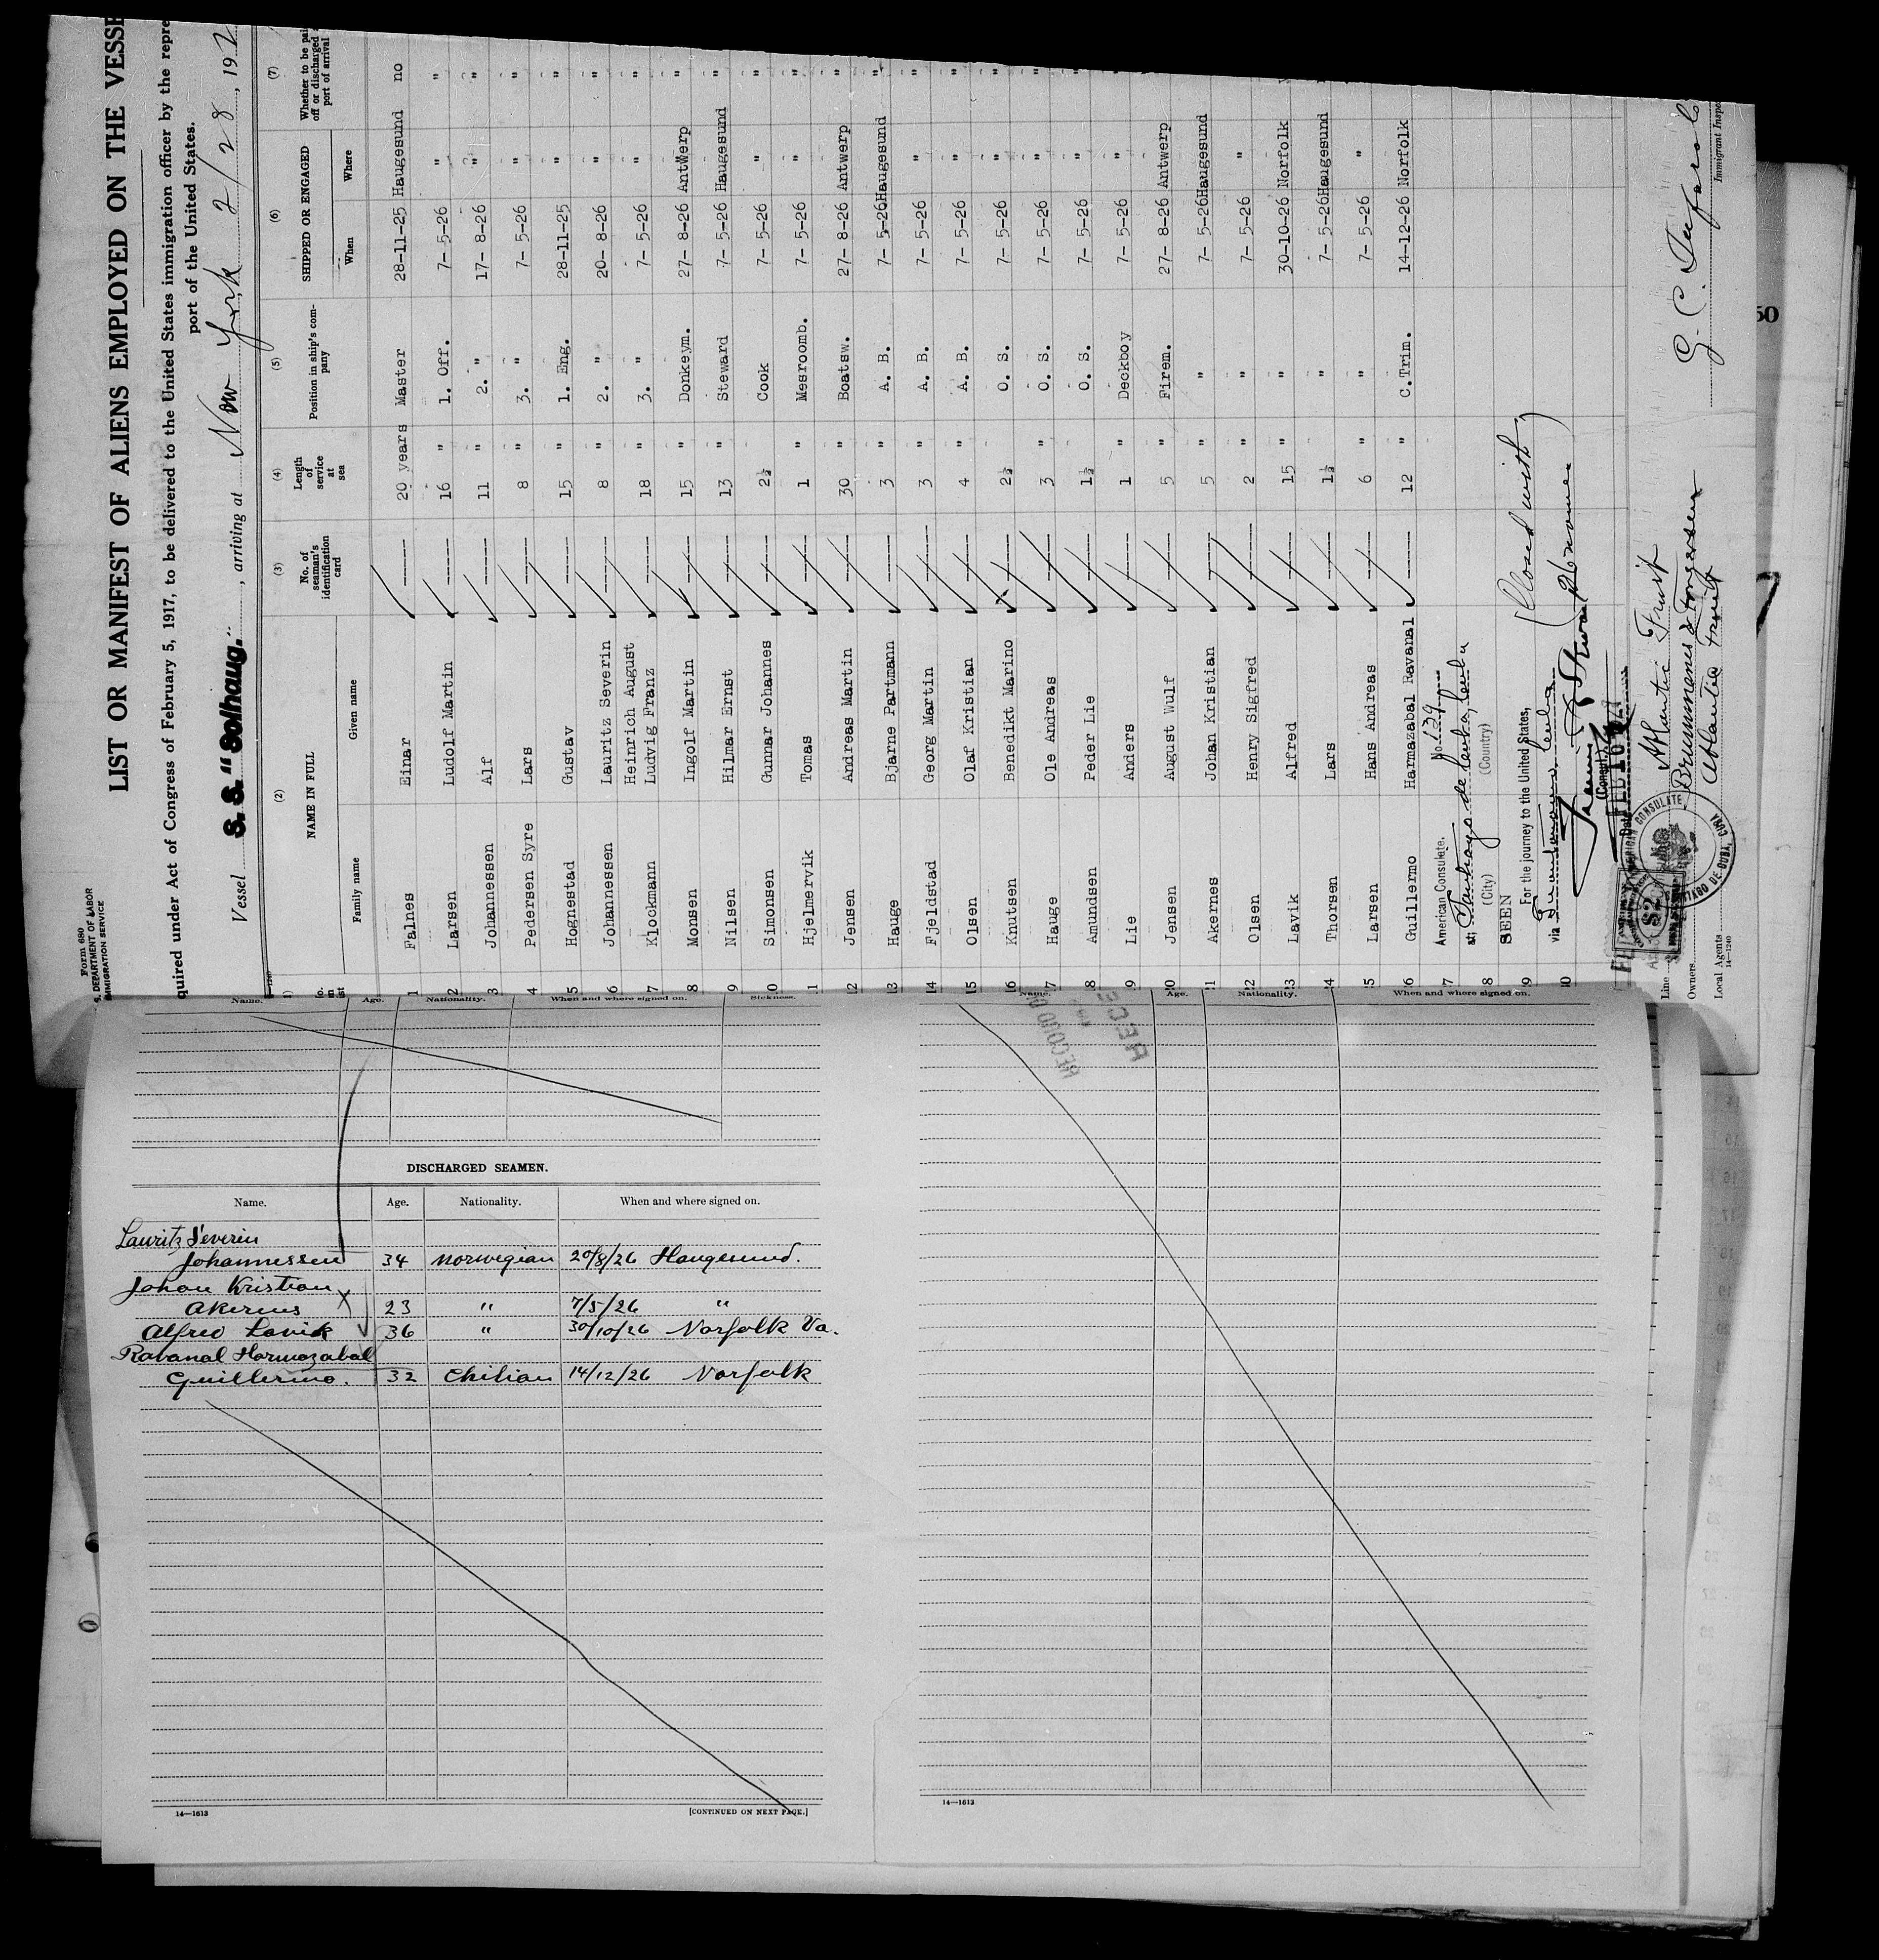 Form 680
S. DEPARTMENT OF LABOR
IMMIGRATION SERVICE
LIST OR MANIFEST OF ALIENS EMPLOYED ON THE VESSE
quired under Act of Congress of February 5, 1917, to be delivered to the United States immigration officer by the repre
port of the United States.
Vessel S. S. "Solhaug." , arriving at New York 2/28, 192
(2) (3) (4) (5) (6) (7)
NAME IN FULL No. of seaman's identification card Length of service at sea Position in ship's company SHIPPED OR ENGAGED Whether to be pai off or discharged port of arrival
Family name Given name When Where
1 Falnes Einar —— 20 years Master 28-11-25 Haugesund no
2 Larsen Ludolf Martin —— 16 " 1. Off. 7- 5-26 " "
3 Johannessen Alf —— 11 " 2. " 17- 8-26 " "
4 Pedersen Syre Lars —— 8 " 3. " 7- 5-26 " "
5 Hognestad Gustav —— 15 " 1. Eng. 28-11-25 " "
6 Johannessen Lauritz Severin —— 8 " 2. " 20- 8-26 " "
7 Klockmann Heinrich August Ludvig Franz —— 18 " 3. " 7- 5-26 " "
8 Monsen Ingolf Martin —— 15 " Donkeym. 27- 8-26 Antwerp "
9 Nilsen Hilmar Ernst —— 13 " Steward 7- 5-26 Haugesund "
0 Simonsen Gunnar Johannes —— 2½ Cook 7- 5-26 " "
1 Hjelmervik Tomas —— 1 " Mesroomb. 7- 5-26 " "
2 Jensen Andreas Martin —— 30 " Boatsw. 27- 8-26 Antwerp "
3 Hauge Bjarne Partmann —— 3 " A. B. 7- 5-26 Haugesund "
4 Fjeldstad Georg Martin —— 3 " A. B. 7- 5-26 " "
5 Olsen Olaf Kristian —— 4 " A. B. 7- 5-26 " "
6 Knutsen Benedikt Marino —— 2½ O. S. 7- 5-26 " "
7 Hauge Ole Andreas —— 3 " O. S. 7- 5-26 " "
8 Amundsen Peder Lie —— 1½ O. S. 7- 5-26 " "
9 Lie Anders —— 1 " Deckboy 7- 5-26 "
0 Jensen August Wulf —— 5 " Firem. 27- 8-26 Antwerp
1 Akernes Johan Kristian —— 5 " " 7- 5-26 Haugesund
2 Olsen Henry Sigfred —— 2 " " 7- 5-26 "
3 Lavik Alfred —— 15 " " 30-10-26 Norfolk
4 Thorsen Lars —— 1½ " 7- 5-26 Haugesund
5 Larsen Hans Andreas —— 6 " " 7- 5-26 "
6 Guillermo Harmazabal Ravanal —— 12 " C.Trim. 14-12-26 Norfolk
7 American Consulate. No. 139
at Santiago de Cuba, Cuba
8 (City) (Country)
SEEN
9 For the journey to the United States,
(Closed with)
via
(Consul)
Date FEB 16 1927
AMERICAN CONSULATE
SANTIAGO DE CUBA, CUBA
$2
Line Atlantic Fruit
Owners Brummenes & Torgersen
Local Agents Atlantic Fruit
14—1240
Immigrant Inspe
50
Name. Age. Nationality. When and where signed on. Sickness.
DISCHARGED SEAMEN.
Name. Age. Nationality. When and where signed on.
Lauritz Severin
Johannessen 34 norwegian 20/8/26 Haugesund.
Johan Kristian
Akernes X 23 " 7/5/26 "
Alfred Lavik 36 " 30/10/26 Norfolk Va.
Ravanal Harmazabal
Guillermo. 32 Chilian 14/12/26 Norfolk
14—1613
[CONTINUED ON NEXT PAGE.]
Name. Age. Nationality. When and where signed on.
14—1613